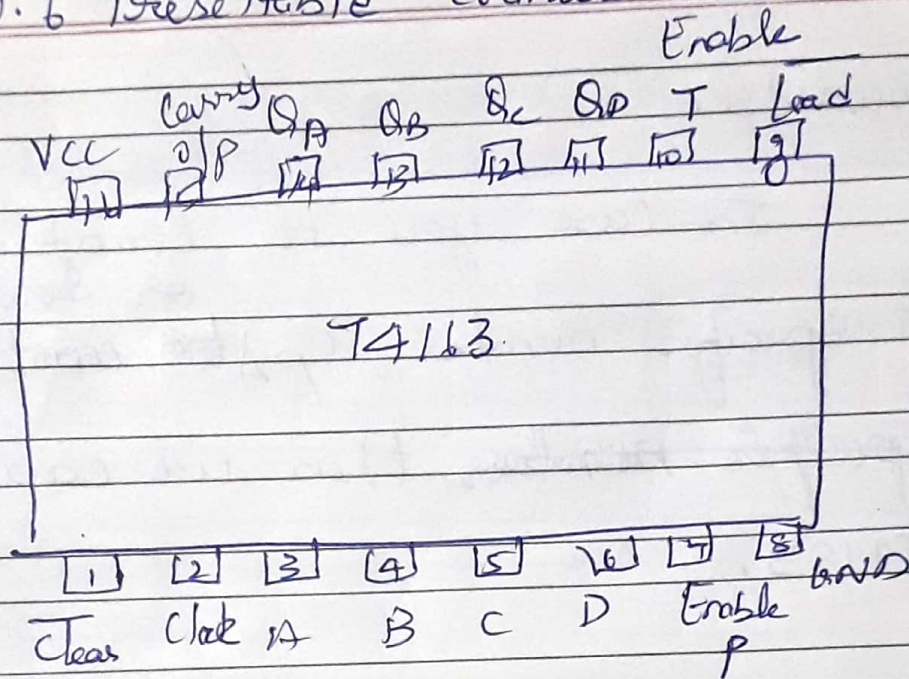 6 Presettable
Enable
Carry QA QB QC QD T Load
VCC O/P
14 13 12 11 10 9
74163
1 2 3 4 5 6 7 8 GND
Clear Clock A B C D Enable
P